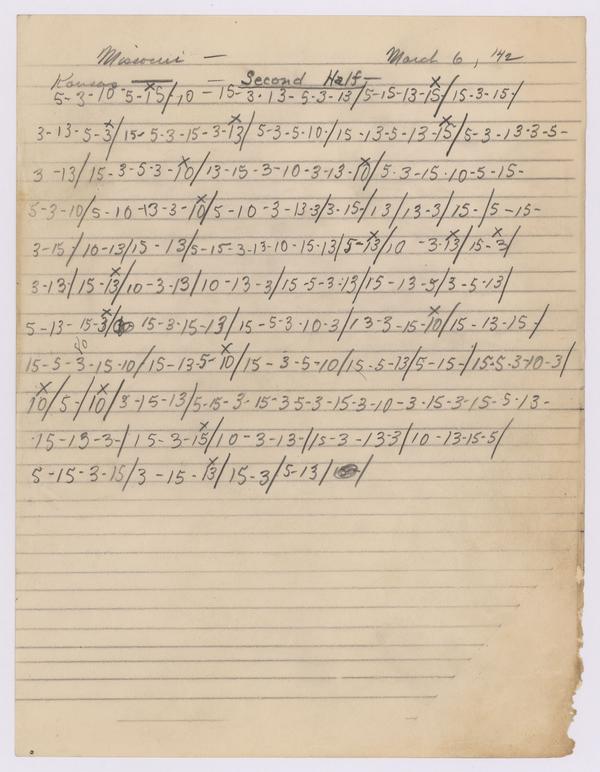 Missouri — March 6, '42
Kansas — Second Half —
5-3-10-5-15/10-15-3-13-5-3-13/5-15-13-15/15-3-15-/
3-13-5-3/15-5-3-15-3-13/5-3-5-10/15-13-5-13-15/5-3-13-3-5-
3-13/15-3-5-3-10/13-15-3-10-3-13-10/5-3-15-10-5-15-
5-3-10/5-10-13-3-10/5-10-3-13-3/3-15-/13/13-3/15-/5-15-
3-15-/10-13/15-13/5-15-3-13-10-15-13/5-13/10-3-13/15-3/
3-13/15-13/10-3-13/10-13-3/15-5-3-13/15-13-5/3-5-13/
5-13-15-3/15-3-15-13/15-5-3-10-3/13-3-15-10/15-13-15-/
15-5-3-15-10/15-13-5-10/15-3-5-10/15-5-13/5-15-/15-5-3-10-3/
10/5-/10/3-15-13/5-15-3-15-3-5-3-15-3-10-3-15-3-15-5-13-
15-13-3-/15-3-15/10-3-13-/15-3-13-3/10-13-15-5/
5-15-3-15/3-15-13/15-3/5-13/